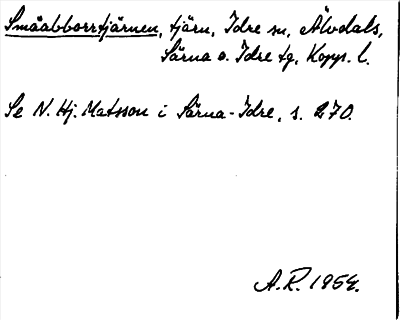 Småabborrtjärnen, tjärn, Idre sn, Älvdals,
Särna o. Idre tg, Kopp. l.
Se N. Hj. Matsson i Särna-Idre, s. 270.
A.R. 1954.